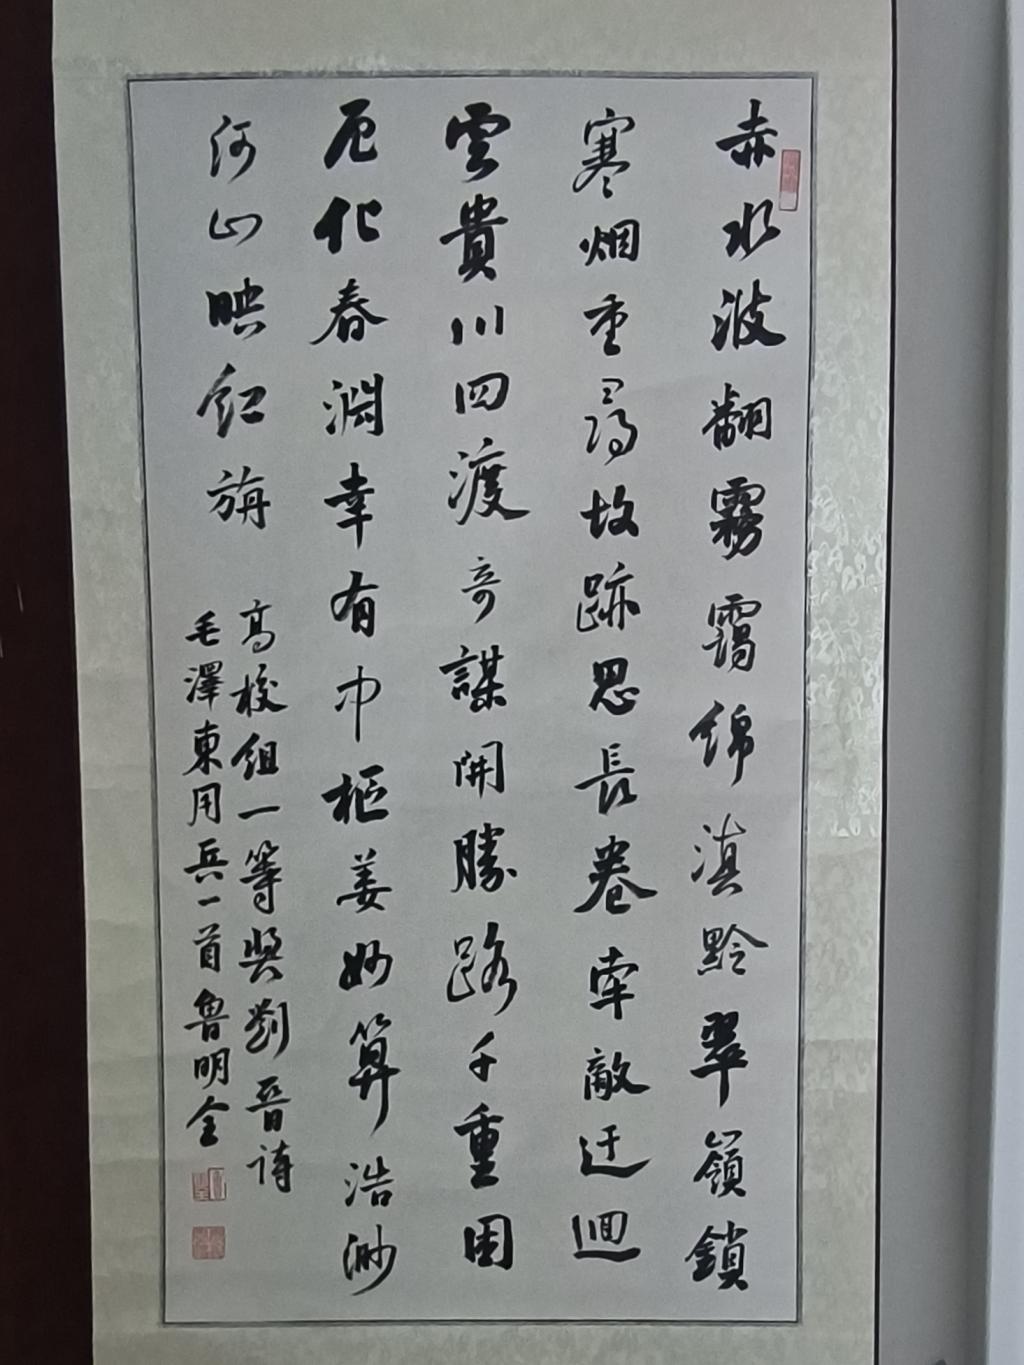 赤水波翻霧靄綿滇黔翠嶺鎖
寒烟重尋故跡思長卷牽敵迂迴
雲貴川四渡奇謀開勝路千重困
厄化春淵幸有中樞姜妙算浩渺
河山映紅旃
高校組一等奬劉晉詩
毛澤東用兵一首魯明全